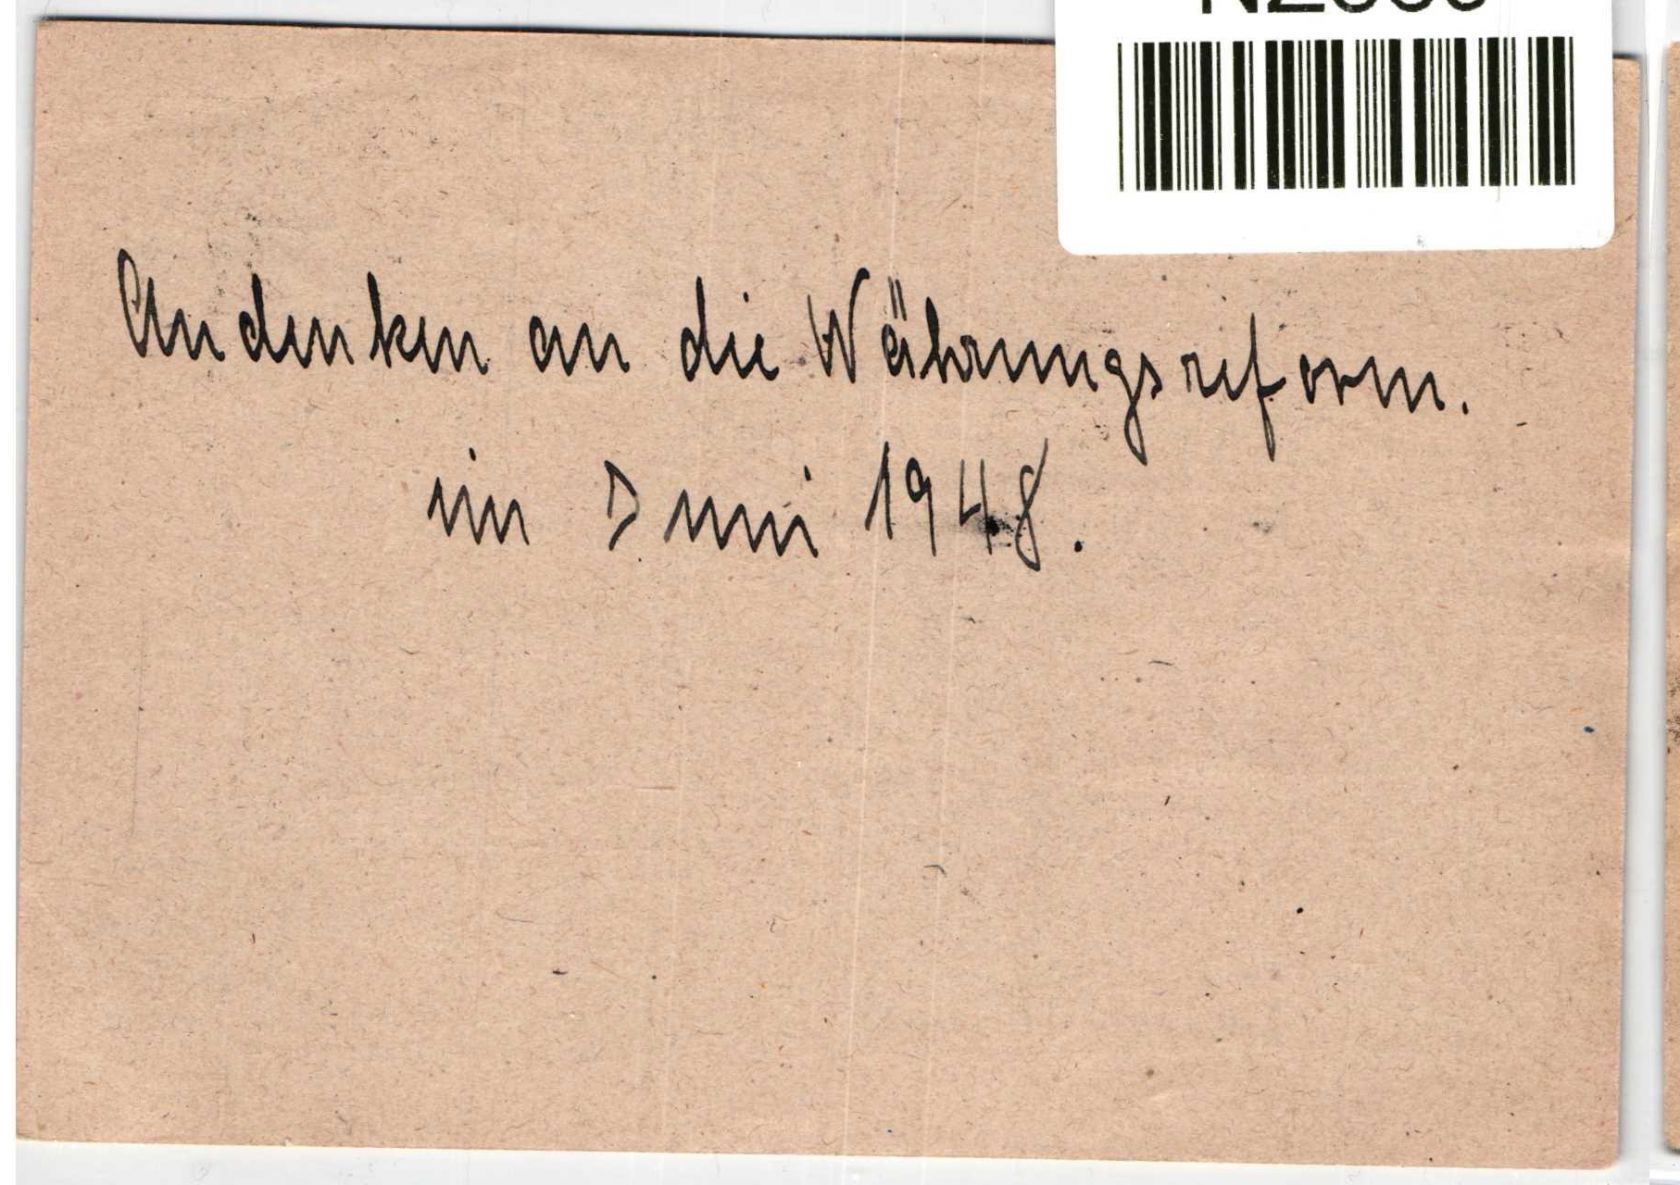 Andenken an die Währungsreform.
im Juni 1948.